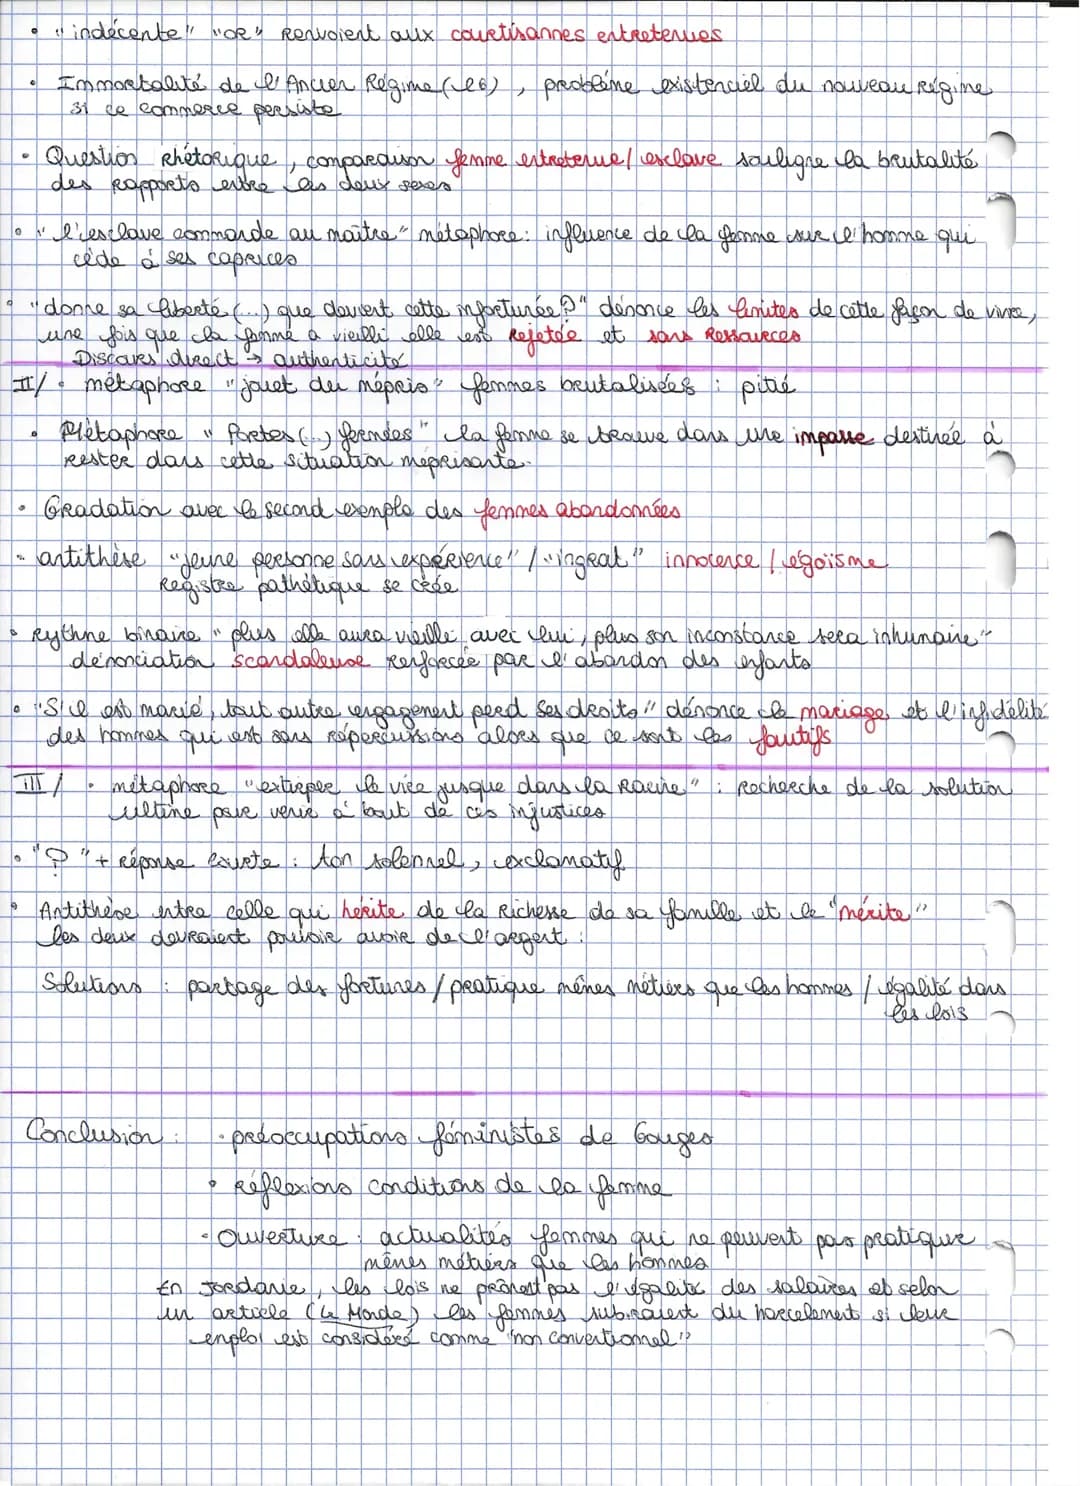 • "indécente" "or" renvoient aux courtisannes entretenues
• Immortalité de l'Ancien Régime (l6), problème existenciel du nouveau régine
si ce commerce persiste
• Question rhétorique, comparaison femme entretenue/ esclave souligne la brutalité
des rapports entre les deux sexes
• "l'esclave commande au maître" métaphore: influence de la femme sur l'homme qui
cède à ses caprices
• "donne sa liberté (...) que devient cette infortunée?" dénonce les limites de cette façon de vivre,
une fois que la femme a vieilli elle est rejetée et sans ressources
Discours direct → authenticité
II/ • métaphore "jouet du mépris" femmes brutalisées : pitié
• Métaphore "Portes (...) fermées" la femme se trouve dans une impasse destinée à
rester dans cette situation méprisante.
• Gradation avec le second exemple des femmes abandonnées
- antithèse "jeune personne sans expérience" / "ingrat" innocence / égoïsme
Registre pathétique se crée
• Rythme binaire "plus elle aura vieille avec lui, plus son inconstance sera inhumaine"
dénonciation scandaleuse renforcée par l'abandon des enfants
• "S'il est marié, tout autre engagement perd ses droits" dénonce le mariage et l'infidélité
des hommes qui est sans répercussions alors que ce sont les fautifs
III/ • métaphore "extirper le vice jusque dans la racine" : recherche de la solution
ultime pour venir à bout de ces injustices
• "?" + réponse courte : ton solennel, exclamatif
• Antithèse entre celle qui hérite de la richesse de sa famille et le "mérite"
les deux devraient pouvoir avoir de l'argent :
Solutions : partage des fortunes / pratique mêmes métiers que les hommes / égalité dans
les lois
Conclusion : • préoccupations féministes de Gouges
• réflexions conditions de la femme
• Ouverture : actualités femmes qui ne peuvent pas pratiquer
mêmes métiers que les hommes
En Jordanie, les lois ne prônent pas l'égalité des salaires et selon
un article (Le Monde) les femmes subiraient du harcelement si leur
emploi est considéré comme "non conventionnel"